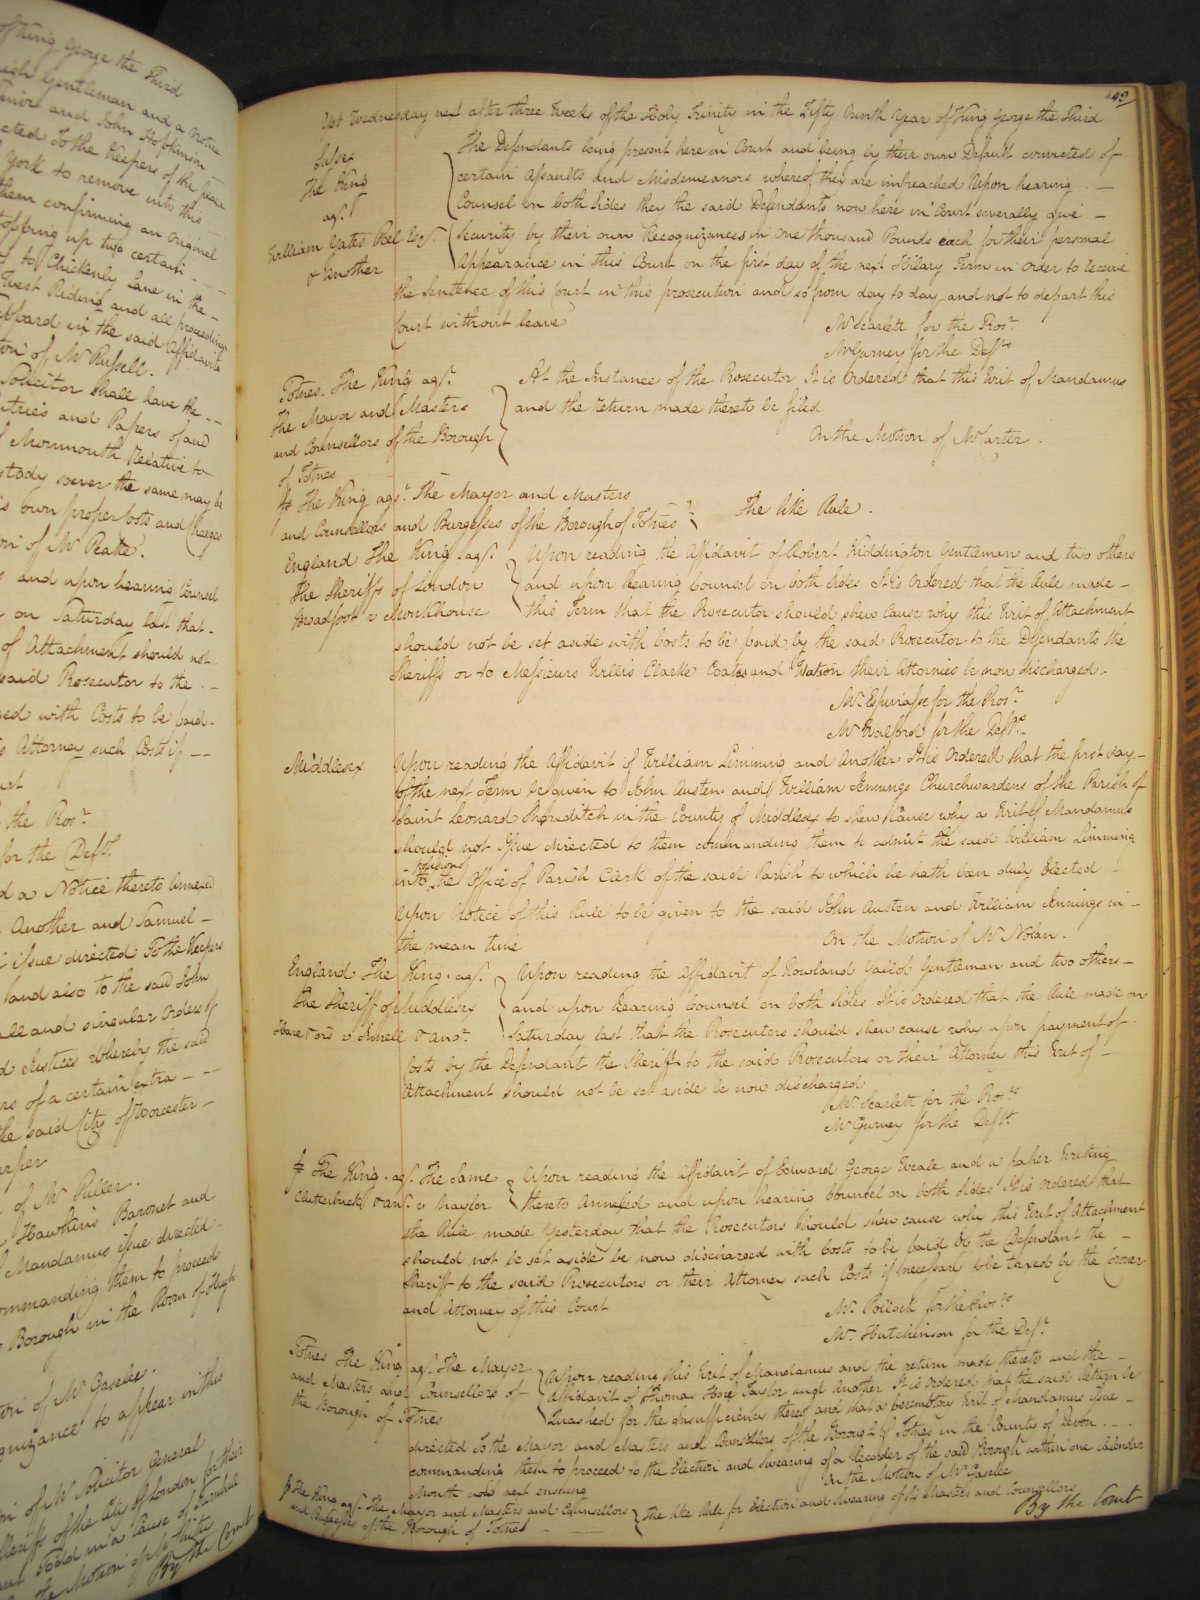 of King George the Third
Gentleman and a Notice
and John Hopkinson
cted To the Keepers of the peace
York to remove into this
them confirming an Original
topping up two certain
to Chickenly Lane in the
West Riding and all proceedings
in the said Affidavits
of Mr Russell.
Solicitor shall have the
and Papers of and
Monmouth Relative to
soever the same may be
own proper Costs and Charges
of Mr Peake.
and upon hearing Counsel
on Saturday last that
of Attachment should not
said Prosecutor to the
with Costs to be paid
Attorney such Costs if
the Prosr
for the Deft.
d a Notice thereto Annexed
Another and Samuel
issue directed To the Keepers
and also to the said John
all and singular Orders of
Justices whereby the said
of a certain extra
the said City of Worcester
of Mr Puller.
Hawkins Baronet and
Mandamus issue directed
ommanding them to proceed
Borough in the Room of Hugh
of Mr Gaselee.
to appear in this
of Mr Solicitor General
of the City of London for their
Todd in a Cause of
the Motion of
By the Court
49
Yet Wednesday next after three Weeks of the Holy Trinity in the Fifty Ninth Year of King George the Third
Sussex
The King
agst
William Yates Peel Esqr.
& Another
The Defendants being present here in Court and being by their own Default convicted of
certain Assaults and Misdemeanors whereof they are impeached Upon hearing
Counsel on both Sides they the said Defendants now here in Court severally give
Security by their own Recognizances in One thousand Pounds each for their personal
Appearance in this Court on the first day of the next Hilary Term in order to receive
the Sentence of this Court in this prosecution and so from day to day and not to depart this
Court without leave
Mr Scarlett for the Prosr
Mr Gurney for the Defts
Totnes. The King agst.
the Mayor and Masters
and Counsellors of the Borough
of Totnes
At the Instance of the Prosecutor It is Ordered that this Writ of Mandamus
and the return made thereto be filed
On the Motion of Mr Carter.
Sa The King agst. The Mayor and Masters
and Counsellors and Burgesses of the Borough of Totnes
The like Rule.
England The King agst.
the Sheriffs of London
Broadfoot v Morehouse
Upon reading the Affidavit of Robert Kiddington Gentleman and two others
and upon hearing Counsel on both sides It is Ordered that the Rule made
this Term that the Prosecutor should shew Cause why this Writ of Attachment
should not be set aside with Costs to be paid by the said Prosecutor to the Defendants the
Sheriffs or to Messieurs Willis Clarke Coates and Watson their Attornies be now discharged.
Mr Espinasse for the Prosr
Mr Walford for the Defts.
Middlesex
Upon reading the Affidavit of William Limming and Another It is Ordered that the first day
of the next Term be given to John Austen and William Jennings Churchwardens of the Parish of
Saint Leonard Shoreditch in the County of Middlesex to shew Cause why a Writ of Mandamus
should not Issue directed to them commanding them to admit the said William Limming
into the Office of Parish Clerk of the said Parish to which he hath been duly Elected
Upon Notice of this Rule to be given to the said John Austen and William Jennings in
the mean time
On the Motion of Mr Nolan.
England The King agst.
the Sheriff of Middlesex
Hare & ors v Jewell & anor.
Upon reading the Affidavit of Rowland Gentleman and two others
and upon hearing Counsel on both Sides It is Ordered that the Rule made on
Saturday last that the Prosecutors should shew cause why upon payment of
Costs by the Defendant the Sheriff to the said Prosecutors or their Attorney this Writ of
Attachment should not be set aside be now discharged
Mr Scarlett for the Prosrs
Mr Gurney for the Deft.
Sa The King agst. The Same
Clutterbuck & anr. v Naylor
Upon reading the Affidavit of Edward George Weale and a paper Writing
thereto Annexed and upon hearing Counsel on both Sides It is Ordered that
the Rule made Yesterday that the Prosecutors should shew cause why this Writ of Attachment
should not be set aside be now discharged with Costs to be paid by the Defendant the
Sheriff to the said Prosecutors or their Attorney such Costs if necessary to be taxed by the Coroner
and Attorney of this Court
Mr Pollock for the Prosrs
Mr. Hutchinson for the Deft.
Totnes The King agst. The Mayor
and Masters and Counsellors of
the Borough of Totnes
Upon reading this Writ of Mandamus and the return made thereto and the
Affidavit of Thomas Taylor and Another It is Ordered that the said Return be
Quashed for the insufficiency thereof and that a peremptory Writ of Mandamus Issue
directed To the Mayor and Masters and Counsellors of the Borough of Totnes in the County of Devon
commanding them to proceed to the Election and Swearing of a Recorder of the said Borough within one Calendar
Month now next ensuing
On the Motion of Mr Gaselee
Sa The King agst. The Mayor and Masters and Counsellors
and Burgesses of the Borough of Totnes
the like Rule for Election and Swearing of Masters and Counsellors
By the Court